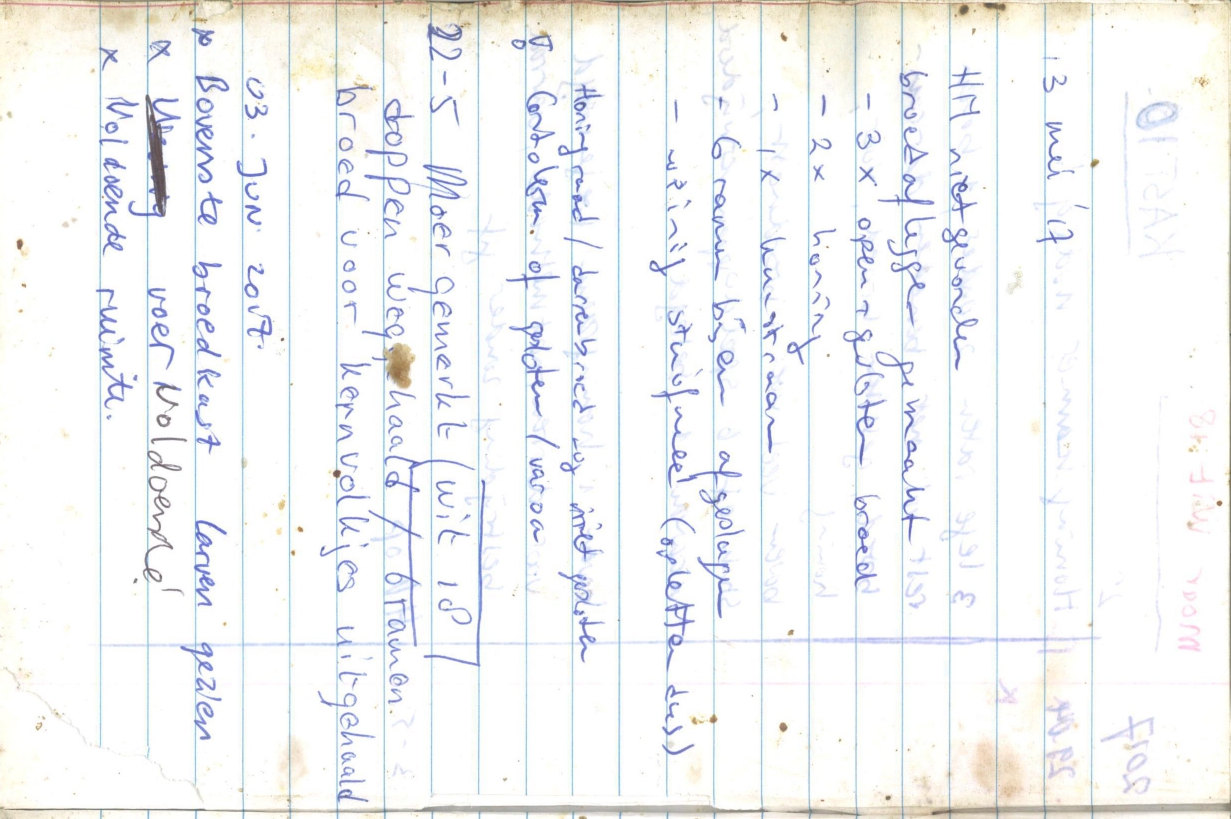 KAST 10
Moar WIF +8
2017
13 mei '17
HM niet gevonden
broedaflegger gemaakt
- 3x open + gesloten broed
- 2x honing
- 1x kunstraam
- 6 ramen bijen afgeslagen
- weinig stuifmeel (opletten dus)
Honingraad / darrenbroed nog niet gesloten
Controleren of gesloten / varoa
22-5 Moer gemerkt (wit 18)
doppen weggehaald / 6 ramen
broed voor kernvolkjes uitgehaald
03. Jun. 2017.
x Bovenste broedkast larven gezien
x voer Voldoende!
x Voldoende ruimte.